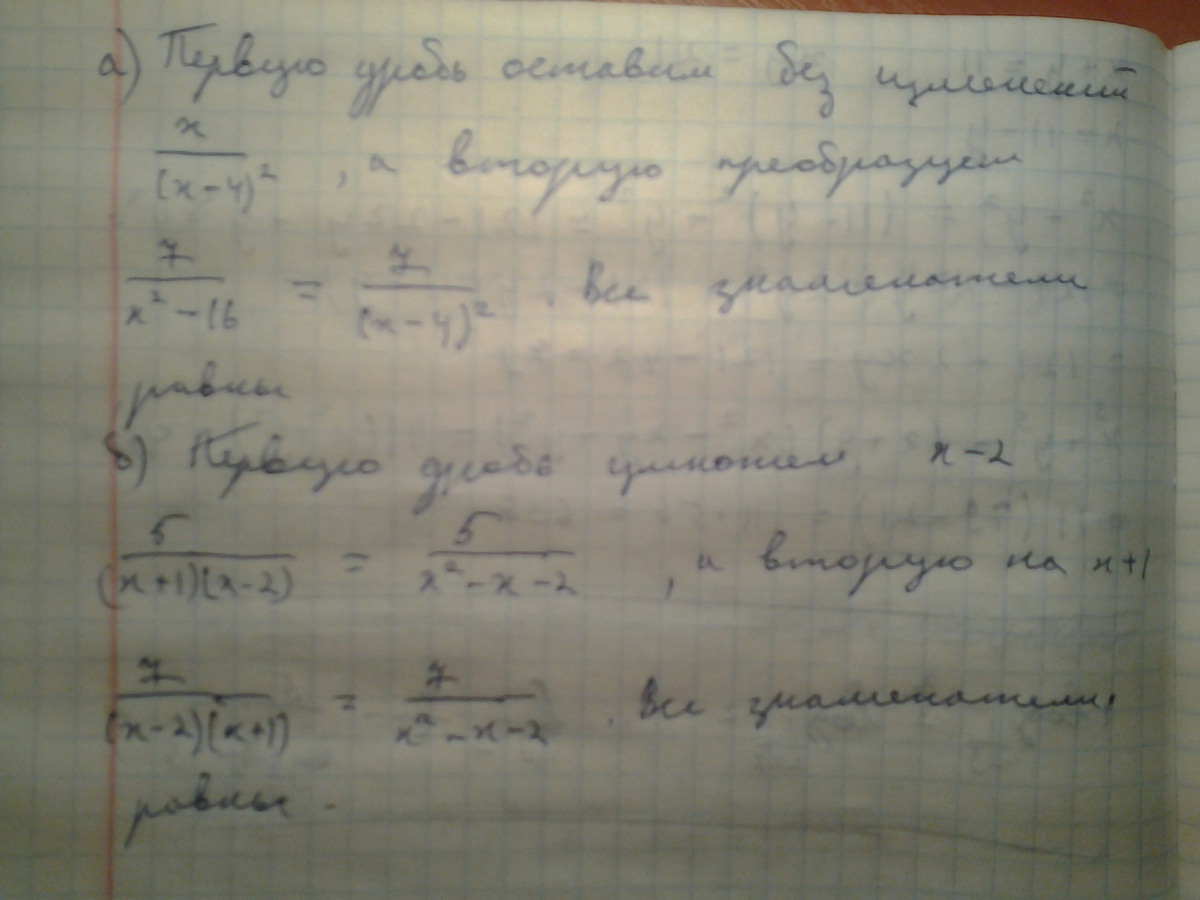 а) Первую дробь оставим без изменений
x/(x-4)², а вторую преобразуем
7/(x²-16) = 7/(x-4)². Все знаменатели
равны
б) Первую дробь умножем x-2
5/((x+1)(x-2)) = 5/(x²-x-2), а вторую на x+1
7/((x-2)(x+1)) = 7/(x²-x-2). Все знаменатели
равны.